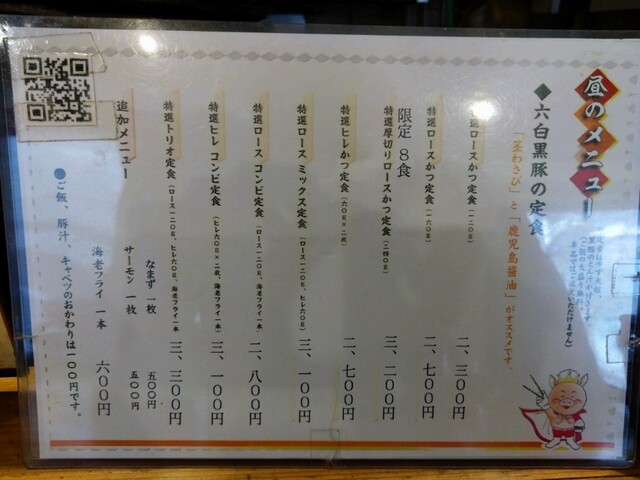 昼のメニュー
◆六白黒豚の定食
「茎わさび」と「鹿児島醤油」がオススメです。
特選ロースかつ定食（一二〇g） 二、三〇〇円
特選ロースかつ定食（一六〇g） 二、七〇〇円
限定 8食
特選厚切りロースかつ定食（二四〇g） 三、二〇〇円
特選ヒレかつ定食（六〇g×二枚） 二、七〇〇円
特選ロース ミックス定食（ロース一二〇g、ヒレ六〇g） 三、一〇〇円
特選ロース コンビ定食（ロース一二〇g、海老フライ一本） 二、八〇〇円
特選ヒレ コンビ定食（ヒレ六〇g×二枚、海老フライ一本） 三、一〇〇円
特選トリオ定食（ロース一二〇g、ヒレ六〇g、海老フライ一本） 三、三〇〇円
追加メニュー
なまず 一枚 五〇〇円
サーモン 一枚 五〇〇円
海老フライ 一本 六〇〇円
●ご飯、豚汁、キャベツのおかわりは一〇〇円です。